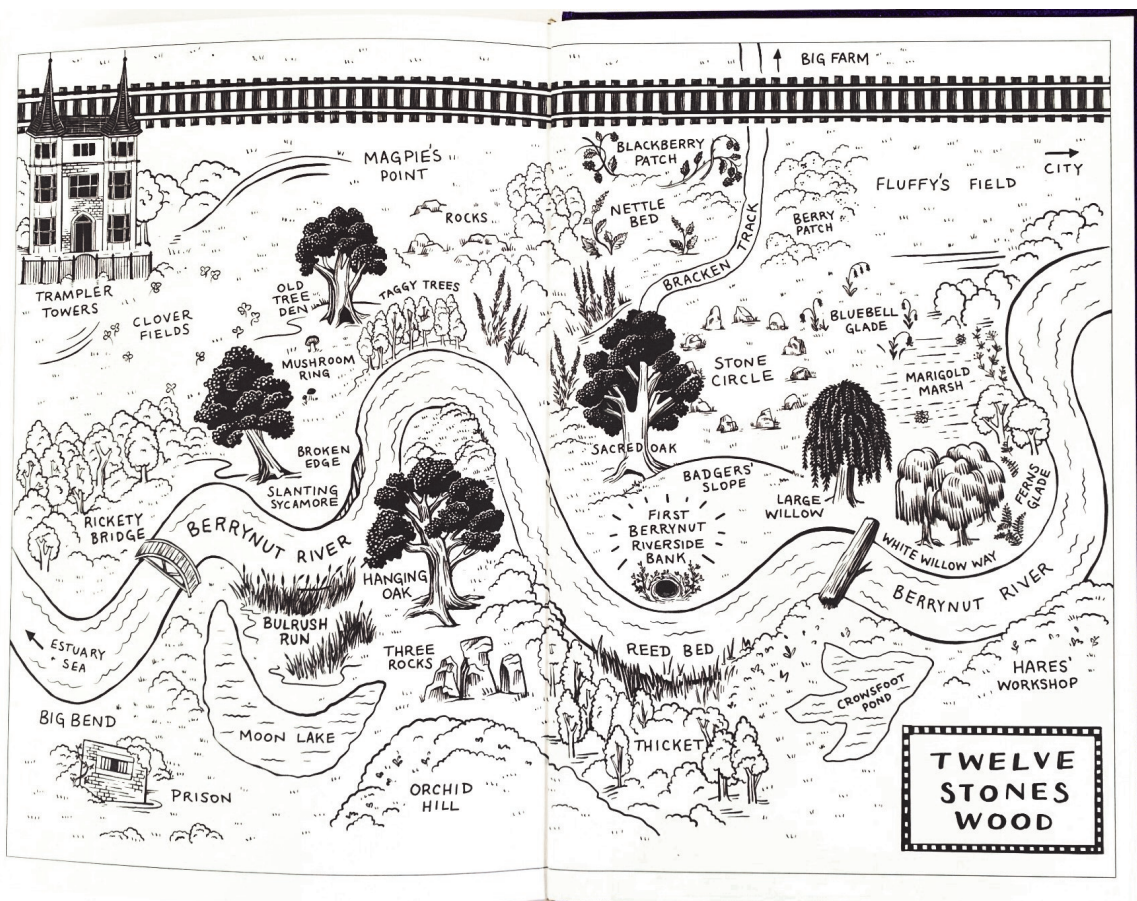 BIG FARM
MAGPIE'S
POINT
BLACKBERRY
PATCH
CITY
FLUFFY'S FIELD
ROCKS
NETTLE
BED
BERRY
PATCH
BRACKEN TRACK
TRAMPLER
TOWERS
CLOVER
FIELDS
OLD
TREE
DEN
TAGGY TREES
MUSHROOM
RING
BLUEBELL
GLADE
STONE
CIRCLE
MARIGOLD
MARSH
BROKEN
EDGE
SLANTING
SYCAMORE
SACRED OAK
BADGERS'
SLOPE
LARGE
WILLOW
FERNS
GLADE
RICKETY
BRIDGE
BERRYNUT RIVER
FIRST
BERRYNUT
RIVERSIDE
BANK
WHITE WILLOW WAY
BERRYNUT RIVER
HANGING
OAK
BULRUSH
RUN
ESTUARY
SEA
THREE
ROCKS
REED BED
HARES'
WORKSHOP
CROWSFOOT
POND
BIG BEND
MOON LAKE
THICKET
PRISON
ORCHID
HILL
TWELVE
STONES
WOOD